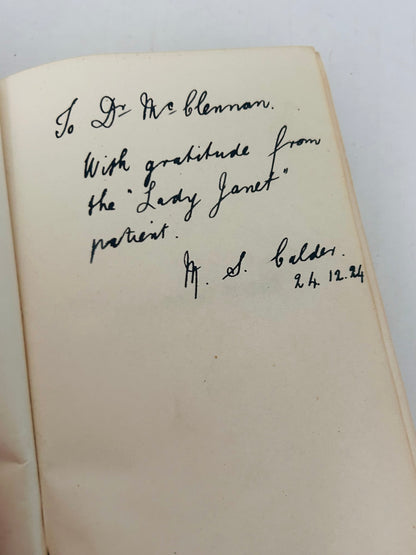 To Dr McClennan.
With gratitude from
the "Lady Janet"
patient.
M. S. Calder.
24.12.24